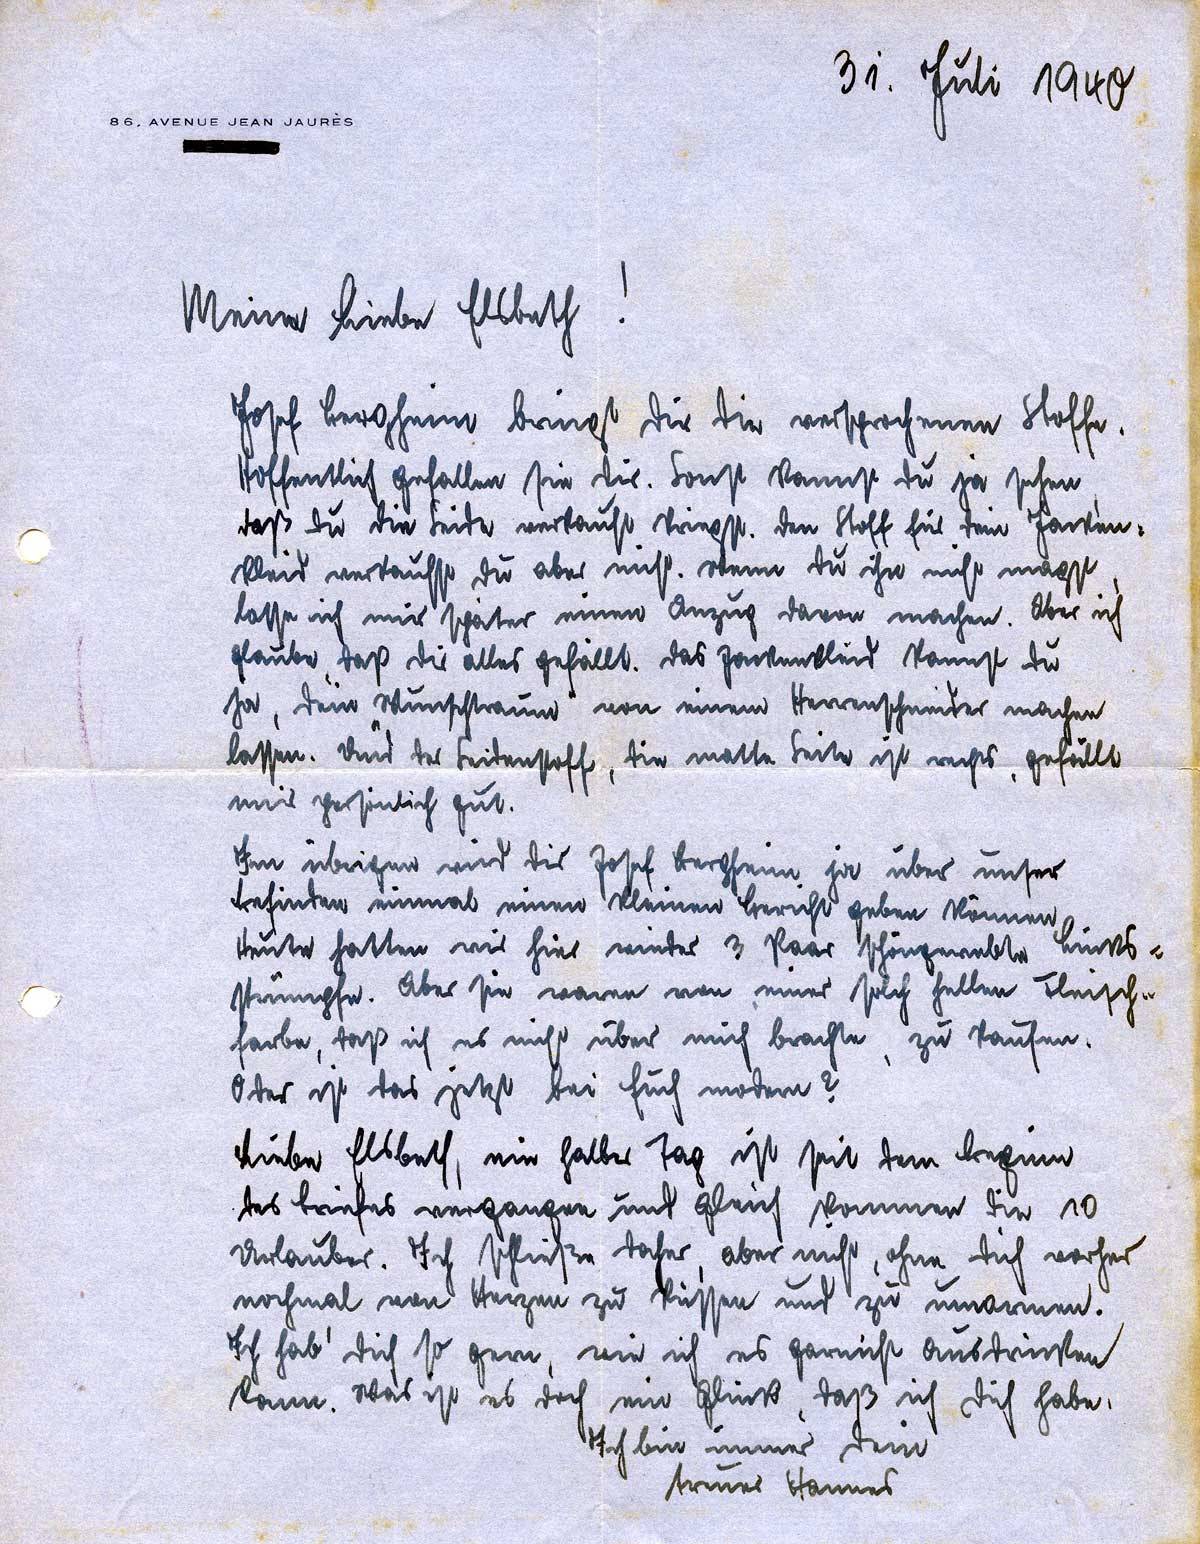 31. Juli 1940
86, AVENUE JEAN JAURÈS
Meine liebe Elsbeth!
Josef Bergheim bringt Dir die versprochenen Stoffe.
Hoffentlich gefallen sie Dir. Sonst kannst Du ja sehen,
daß Du die Seide verkauft kriegst. Den Stoff für Dein Jacken-
kleid verkaufst Du aber nicht. Wenn Du ihn nicht magst,
lasse ich mir später einen Anzug davon machen. Aber ich
glaube, daß Dir alles gefällt. Das Jackenkleid kannst Du
ja, Dein "Wunschtraum" von einem Herrenschneider machen
lassen. Und der Seidenstoff, die matte Seite ist rechts, gefällt
mir persönlich gut.
Im übrigen wird Dir Josef Bergheim ja über unser
Befinden einmal einen kleinen Bericht geben können.
Heute hatten wir hier wieder 3 Paar schöngewebte Links-
strümpfe. Aber sie waren von einer solch hellen Fleisch-
farbe, daß ich es nicht über mich brachte, zu kaufen.
Oder ist das jetzt bei Euch modern?
Liebe Elsbeth, ein halber Tag ist seit dem Beginn
des Briefes vergangen und gleich kommen die 10
Urlauber. Ich schließe daher, aber nicht, ohne Dich vorher
nochmal von Herzen zu küssen und zu umarmen.
Ich hab' Dich so gern, wie ich es garnicht ausdrücken
kann. Was ist es doch ein Glück, daß ich Dich habe.
Ich bin immer Dein
treuer Hannes